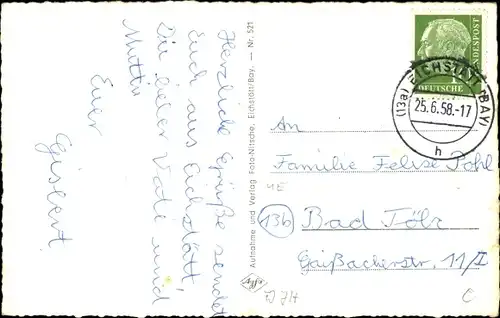 Herzliche Grüße sendet
Euch aus Eichstätt,
Dir lieber Vati und
Mutti
Euer
Gisbert
Aufnahme und Verlag Foto-Nitsche, Eichstätt/Bay. — Nr. 521
DEUTSCHE
BUNDESPOST
(13a) EICHSTÄTT (BAY)
25.6.58.-17
h
An
Familie Felix Pohl
13b Bad Tölz
Gaißacherstr. 11/I